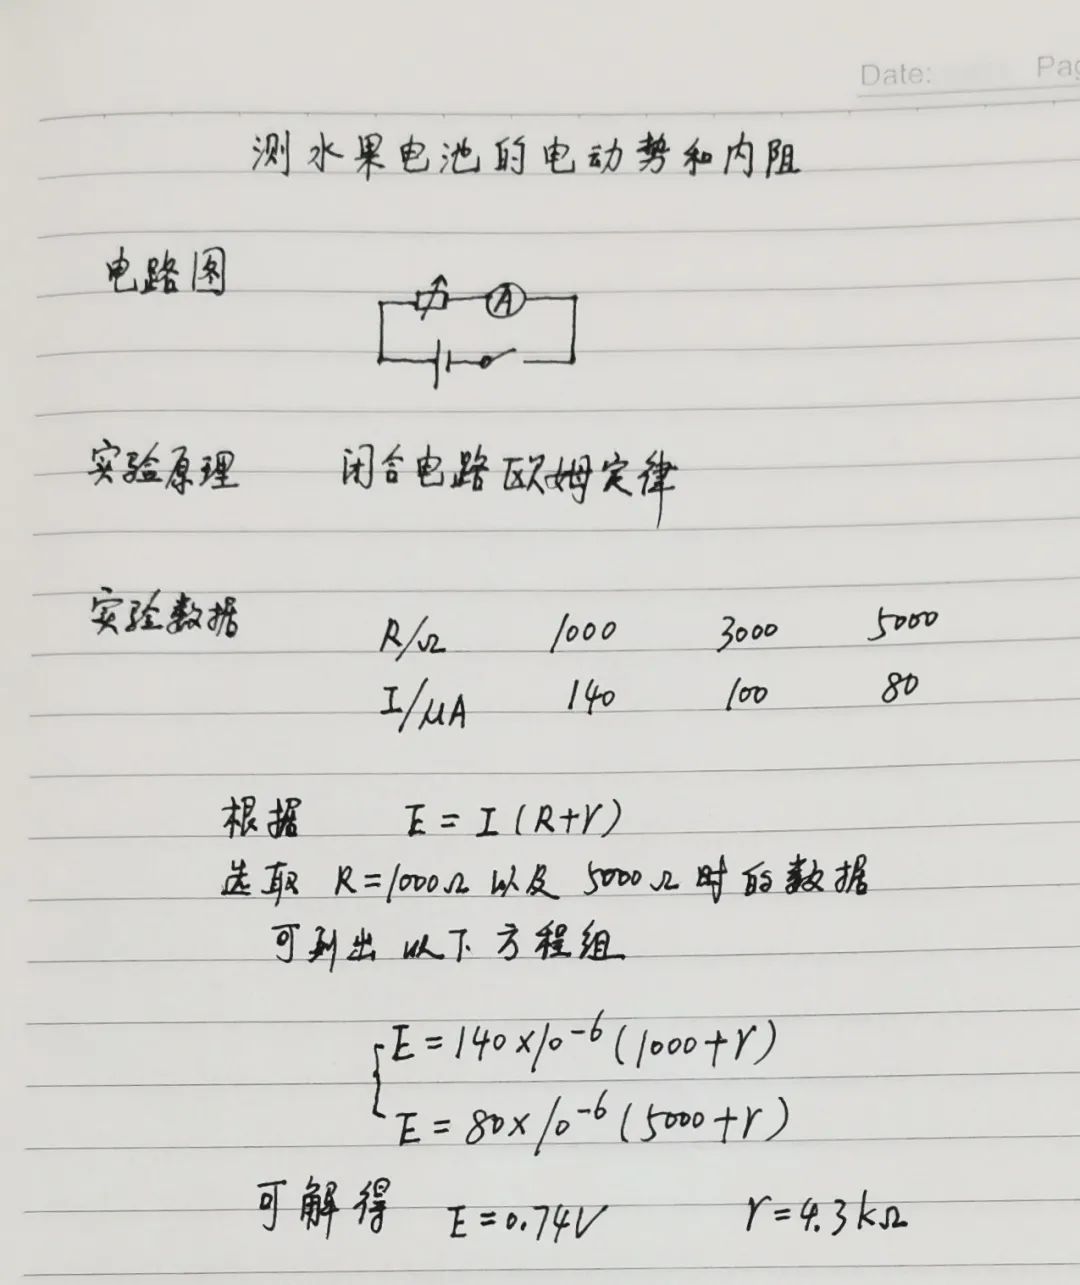 Date: Pag
测水果电池的电动势和内阻
电路图
A
实验原理 闭合电路欧姆定律
实验数据 R/Ω 1000 3000 5000
I/μA 140 100 80
根据 E = I (R+r)
选取 R=1000Ω 以及 5000Ω 时的数据
可列出以下方程组
E = 140×10⁻⁶ (1000+r)
E = 80×10⁻⁶ (5000+r)
可解得 E=0.74V r=4.3kΩ